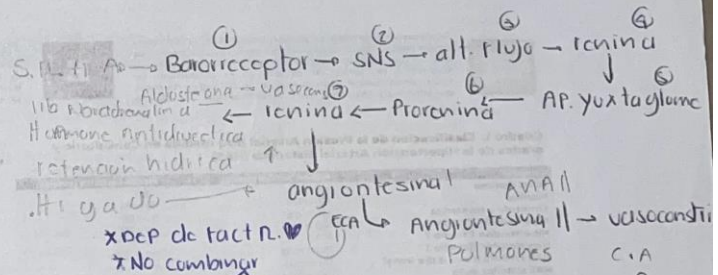 ① ② ③ ④
Barorreceptor → SNS → alt. flujo → renina
Aldosterona → vasocons ⑦ ⑥ ⑤
lib noradrenalina ← renina ← Prorenina ← AP. yuxtaglome
Hormone antidiuretica
retencion hidrica ↑
.Higado → angiontesina I ANA II
ECA ↳ Angiontesina II → vasoconstri
*Dep de ract n.
Pulmones C.A
*No combinar